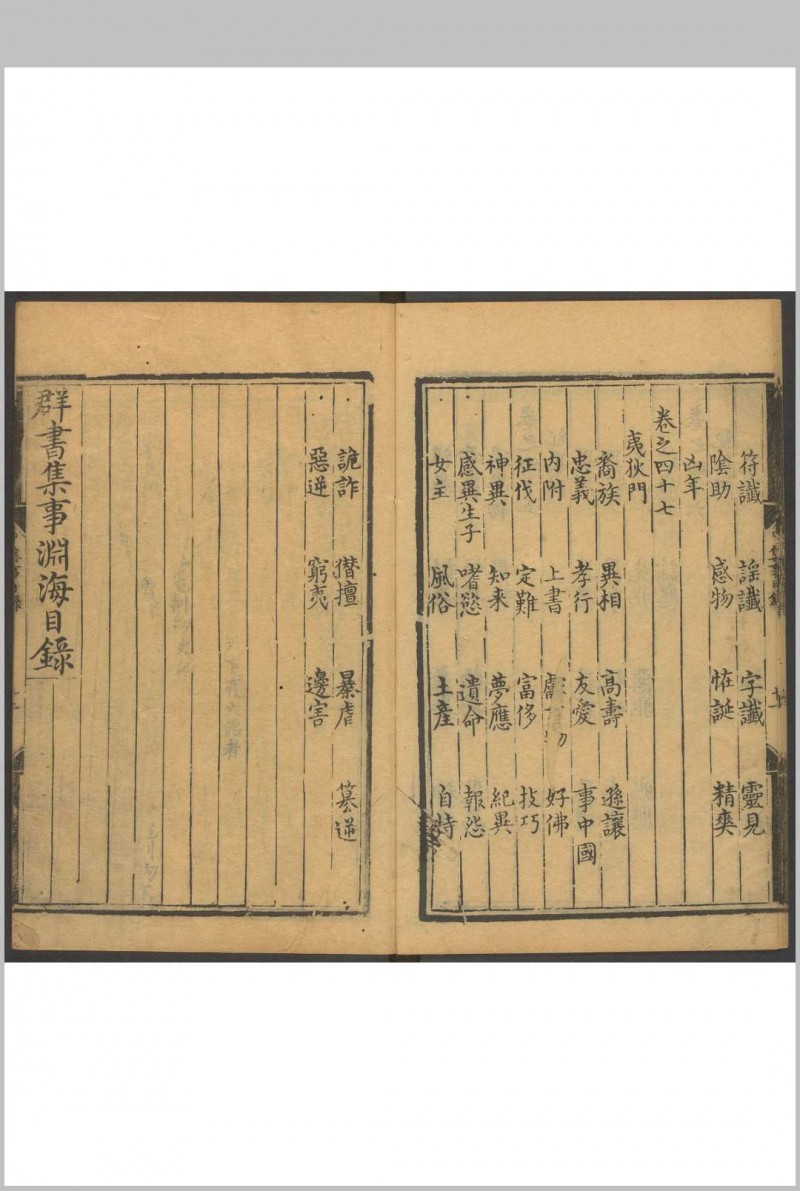 符讖 謡讖 字讖 靈見
陰助 感物 恠誕 精爽
凶年
卷之四十七
夷狄門
裔族 異相 高壽 遜讓
忠義 孝行 友愛 事中國
內附 上書 好佛
征伐 定難 富侈 技巧
神異 知来 夢應 紀異
感異生子 嗜慾 遺命 報怨
女主 風俗 土産 自恃
詭詐 僣擅 暴虐 篡逆
惡逆 窮夷 邊害
群書集事淵海目録